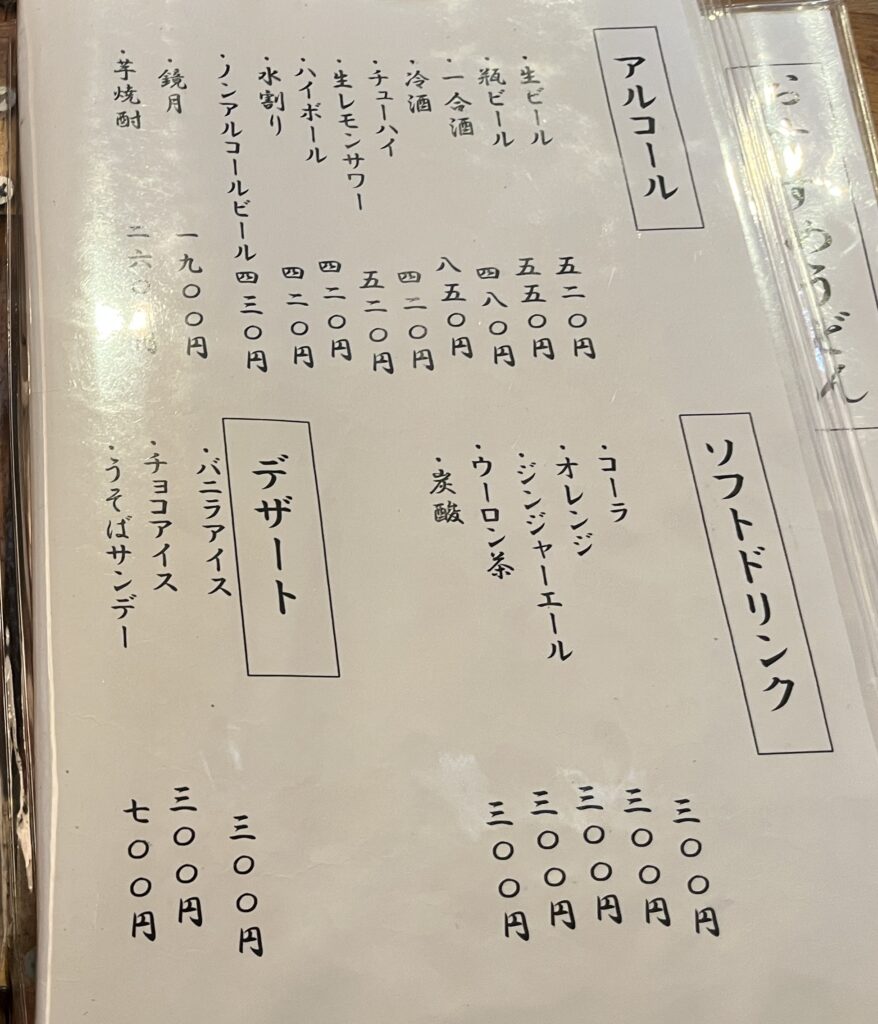 おすすめうどん
アルコール
・生ビール 五二〇円
・瓶ビール 五五〇円
・一合酒 四八〇円
・冷酒 八五〇円
・チューハイ 四二〇円
・生レモンサワー 五二〇円
・ハイボール 四二〇円
・水割り 四二〇円
・ノンアルコールビール 四三〇円
・鏡月 一九〇〇円
・芋焼酎 二六〇〇円
ソフトドリンク
・コーラ 三〇〇円
・オレンジ 三〇〇円
・ジンジャーエール 三〇〇円
・ウーロン茶 三〇〇円
・炭酸 三〇〇円
デザート
・バニラアイス 三〇〇円
・チョコアイス 三〇〇円
・うそばサンデー 七〇〇円